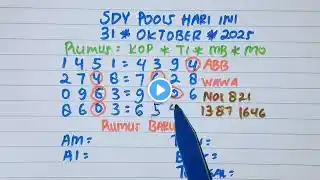 SDY POOLS HARI INI
31 * OKTOBER * 2025
Rumus: * KOP * TI * MB * MO
1 4 5 1 = 4 3 9 4 ABB
2 7 4 8 = 7 2 8 WAWA
0 9 6 3 = 9 6 NO1 821
8 6 0 3 = 6 5 1387 1646
RUMUS
AM =
AI =